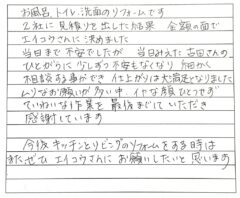 お風呂、トイレ、洗面のリフォームです
2社に見積りを出した結果 金額の面で
エイコウさんに決めました
当日まで不安でしたが 当日みえた吉田さんの
ひとがらに少しずつ不安もなくなり 細かく
相談する事ができ 仕上がりは大満足となりました
ムリなお願いが多い中、イヤな顔ひとつせず
ていねいな作業を最後までしていただき
感謝しています
今後 キッチンとリビングのリフォームをする時は
またぜひ エイコウさんに お願いしたいと思います